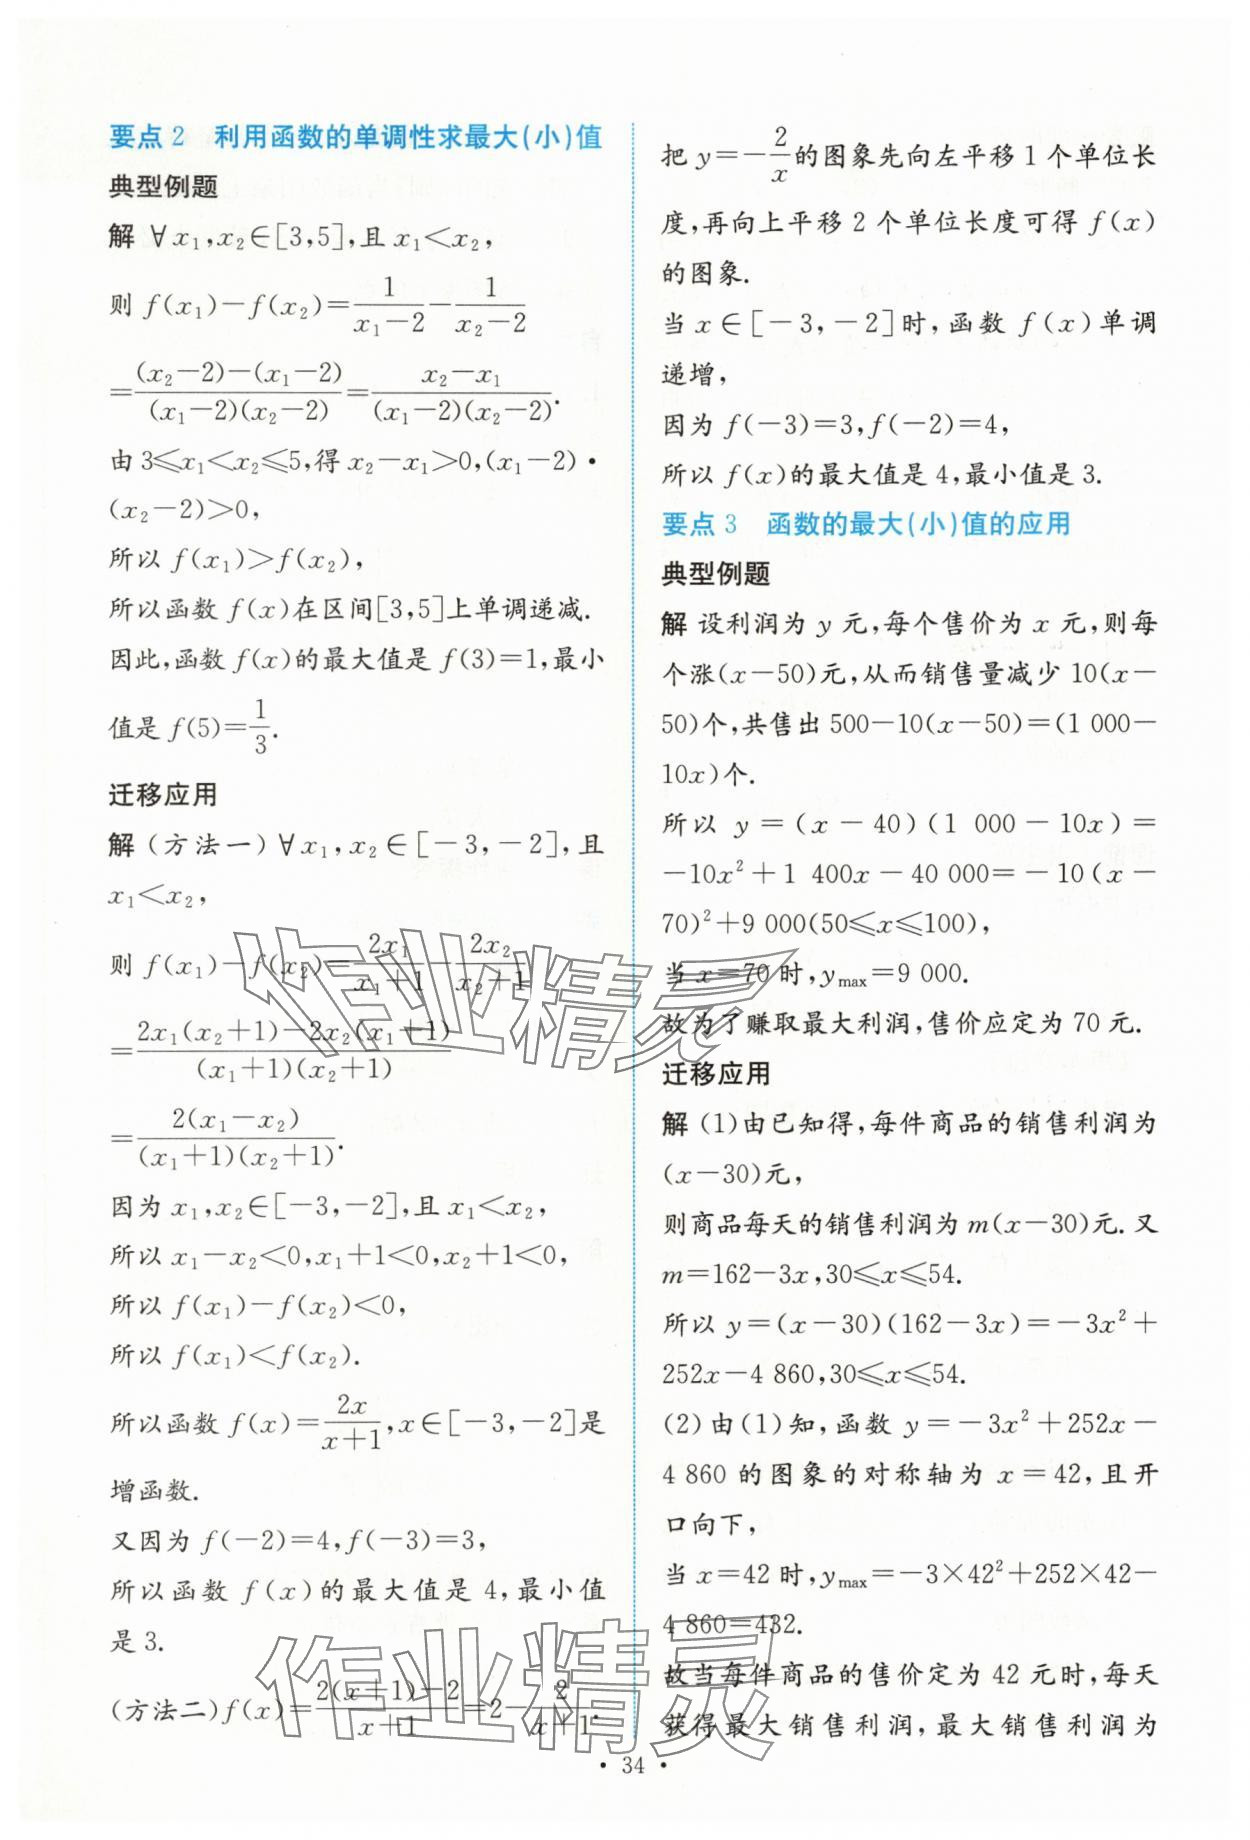 要点 2 利用函数的单调性求最大(小)值
典型例题
解 ∀x₁,x₂∈[3,5],且 x₁<x₂,
则 f(x₁)-f(x₂)=1/(x₁-2)-1/(x₂-2)
=((x₂-2)-(x₁-2))/((x₁-2)(x₂-2))=(x₂-x₁)/((x₁-2)(x₂-2)).
由 3≤x₁<x₂≤5,得 x₂-x₁>0,(x₁-2)·
(x₂-2)>0,
所以 f(x₁)>f(x₂),
所以函数 f(x)在区间[3,5]上单调递减.
因此,函数 f(x)的最大值是 f(3)=1,最小
值是 f(5)=1/3.
迁移应用
解 (方法一)∀x₁,x₂∈[-3,-2],且
x₁<x₂,
则 f(x₁)-f(x₂)=2x₁/(x₁+1)-2x₂/(x₂+1)
=(2x₁(x₂+1)-2x₂(x₁+1))/((x₁+1)(x₂+1))
=2(x₁-x₂)/((x₁+1)(x₂+1)).
因为 x₁,x₂∈[-3,-2],且 x₁<x₂,
所以 x₁-x₂<0,x₁+1<0,x₂+1<0,
所以 f(x₁)-f(x₂)<0,
所以 f(x₁)<f(x₂).
所以函数 f(x)=2x/(x+1),x∈[-3,-2]是
增函数.
又因为 f(-2)=4,f(-3)=3,
所以函数 f(x)的最大值是 4,最小值
是 3.
(方法二)f(x)=(2(x+1)-2)/(x+1)=2-2/(x+1).
把 y=-2/x的图象先向左平移 1 个单位长
度,再向上平移 2 个单位长度可得 f(x)
的图象.
当 x∈[-3,-2]时,函数 f(x)单调
递增,
因为 f(-3)=3,f(-2)=4,
所以 f(x)的最大值是 4,最小值是 3.
要点 3 函数的最大(小)值的应用
典型例题
解 设利润为 y 元,每个售价为 x 元,则每
个涨(x-50)元,从而销售量减少 10(x-
50)个,共售出 500-10(x-50)=(1 000-
10x)个.
所以 y=(x-40)(1 000-10x)=
-10x²+1 400x-40 000=-10(x-
70)²+9 000(50≤x≤100),
当 x=70 时,yₘₐₓ=9 000.
故为了赚取最大利润,售价应定为 70 元.
迁移应用
解 (1)由已知得,每件商品的销售利润为
(x-30)元,
则商品每天的销售利润为 m(x-30)元.又
m=162-3x,30≤x≤54.
所以 y=(x-30)(162-3x)=-3x²+
252x-4 860,30≤x≤54.
(2)由(1)知,函数 y=-3x²+252x-
4 860 的图象的对称轴为 x=42,且开
口向下,
当 x=42 时,yₘₐₓ=-3×42²+252×42-
4 860=432.
故当每件商品的售价定为 42 元时,每天
获得最大销售利润,最大销售利润为
• 34 •
作业精灵
作业精灵